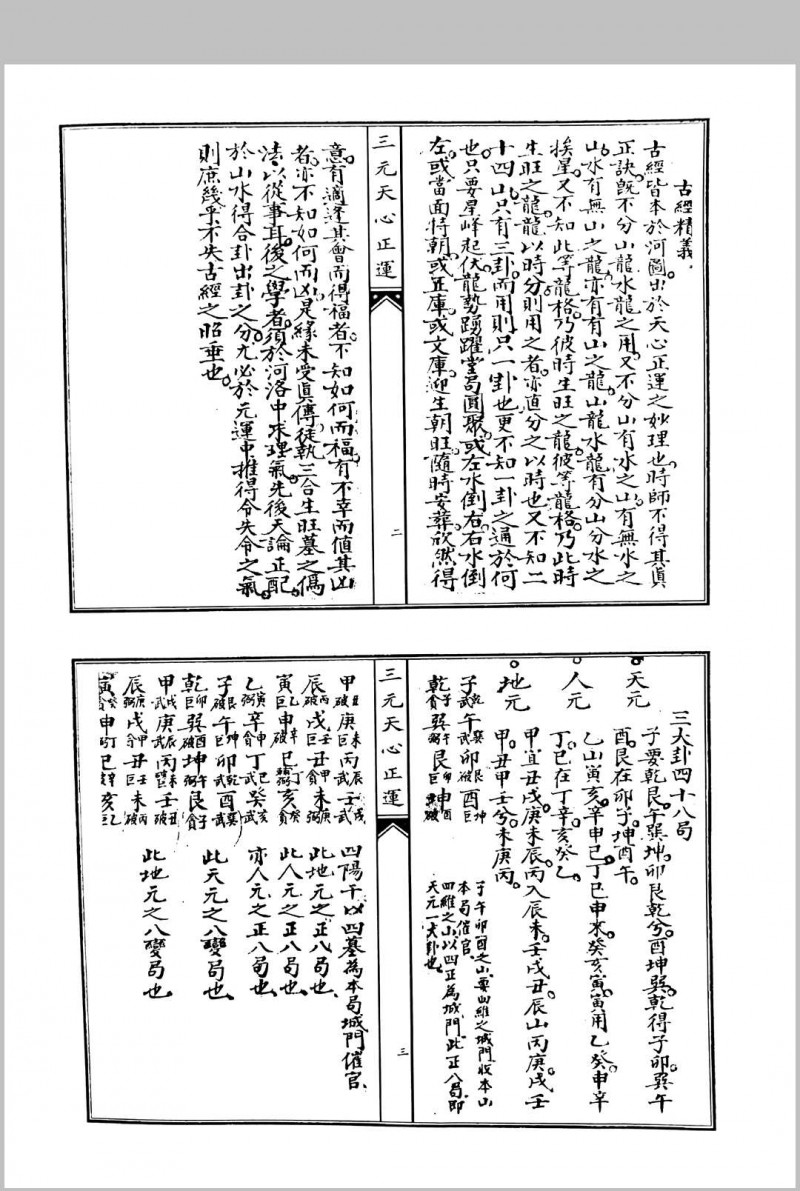 古經精義
古經皆本於河圖出於天心正運之妙理也時師不得其真
正訣旣不分山龍水龍之用又不分山有水之山有無水之
山水有無山之龍亦有有山之龍山龍水龍有分山分水之
挨星又不知此等龍格乃彼時生旺之龍彼等龍格乃此時
生旺之龍龍以時分則用之者亦直分之以時也又不知二
十四山只有三卦而用則只一卦也更不知一卦之通於何
也只要星峰起伏龍勢踴躍堂局圓聚或左水倒右右水倒
左或當面特朝或正庫或文庫迎生朝旺隨時安葬欣然得
三元天心正運
二
意有適逢其會而得福者不知如何而福有不幸而值其凶
者亦不知如何而凶是緣未受眞傳徒執三合生旺墓之僞
法以從事耳後之學者須於河洛中求理氣先後天論正配
於山水得合卦出卦之分尤必於元運中推得令失令之氣
則庶幾乎不失古經之昭垂也
三大卦四十八局
天元
子要乾艮午巽坤卯艮乾兮酉坤巽乾得子卯巽午
酉艮在卯子坤酉午
人元
乙山寅亥辛申巳丁巳申來癸亥寅寅用乙癸申辛
丁巳在丁辛亥癸乙
地元
甲宜丑戌庚未辰丙入辰未壬戌丑辰山丙庚戌壬
甲丑甲壬兮未庚丙
子午卯酉
子午卯酉之山要四維之城門收本山
本局催官
四維之山以四正為城門此正八局即
天元一大卦也
乾巽艮坤
三元天心正運
三
甲庚丙壬
四陽干以四墓為本局城門催官
辰戌丑未
此地元之正八局也
寅申巳亥
此人元之正八局也
乙辛丁癸
亦人元之正八局也
子午卯酉
乾巽坤艮
此天元之八變局也
甲庚丙壬
辰戌丑未
此地元之八變局也
寅申巳亥